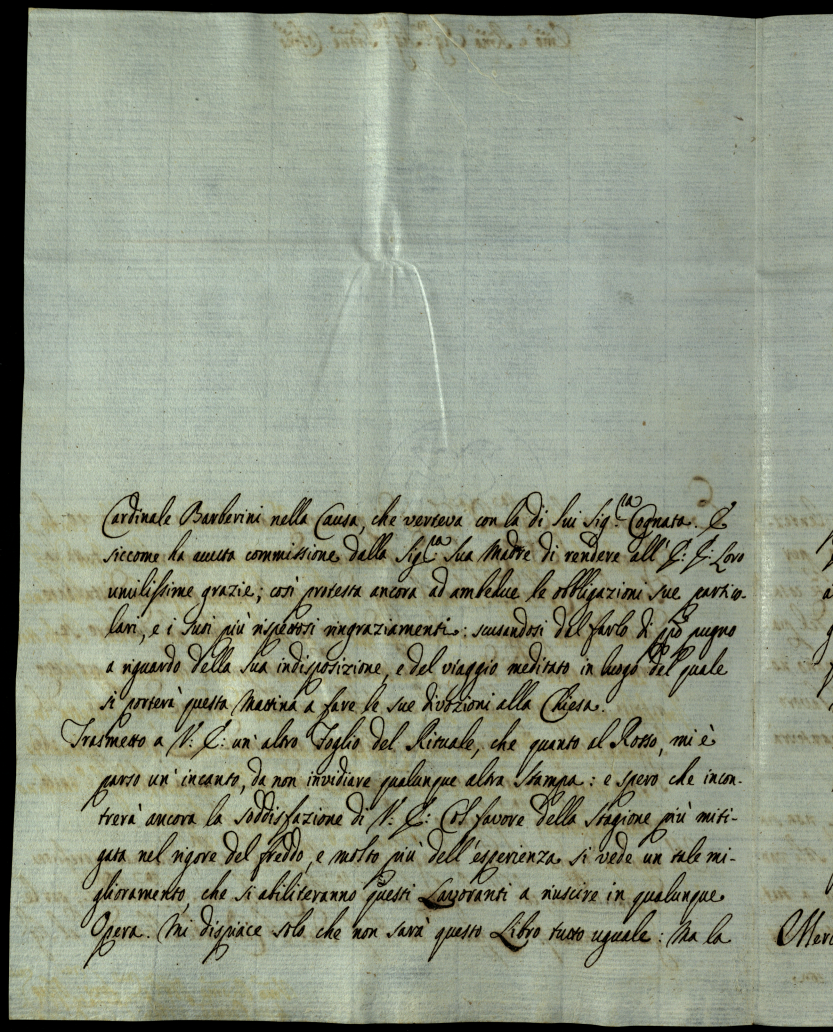 Cardinale Barberini nella Causa, che verteva con la di Lui Sig.ra Cognata. E
siccome ha avuta commissione dalla Sig.ra Sua Madre di rendere all' E: E: Loro
umilissime grazie; così protesta ancora ad ambedue le obbligazioni sue partico-
lari, e i suoi più rispettosi ringraziamenti: scusandosi del farlo di ppo pugno
a riguardo della Sua indisposizione, e del viaggio meditato in luogo del quale
si porterà questa Mattina a fare le sue divozioni alla Chiesa.
Trasmetto a V: E: un' altro Foglio del Rituale, che quanto al Rosso, mi è
parso un' incanto, da non invidiare qualunque altra Stampa: e spero che incon-
trerà ancora la Soddisfazione di V: E: Col favore della Stagione più miti-
gata nel rigore del freddo, e molto più dell' esperienza si vede un tale mi-
glioramento, che si abiliteranno questi Lavoranti a riuscire in qualunque
Opera. Mi dispiace solo che non sarà questo Libro tutto uguale: Ma la